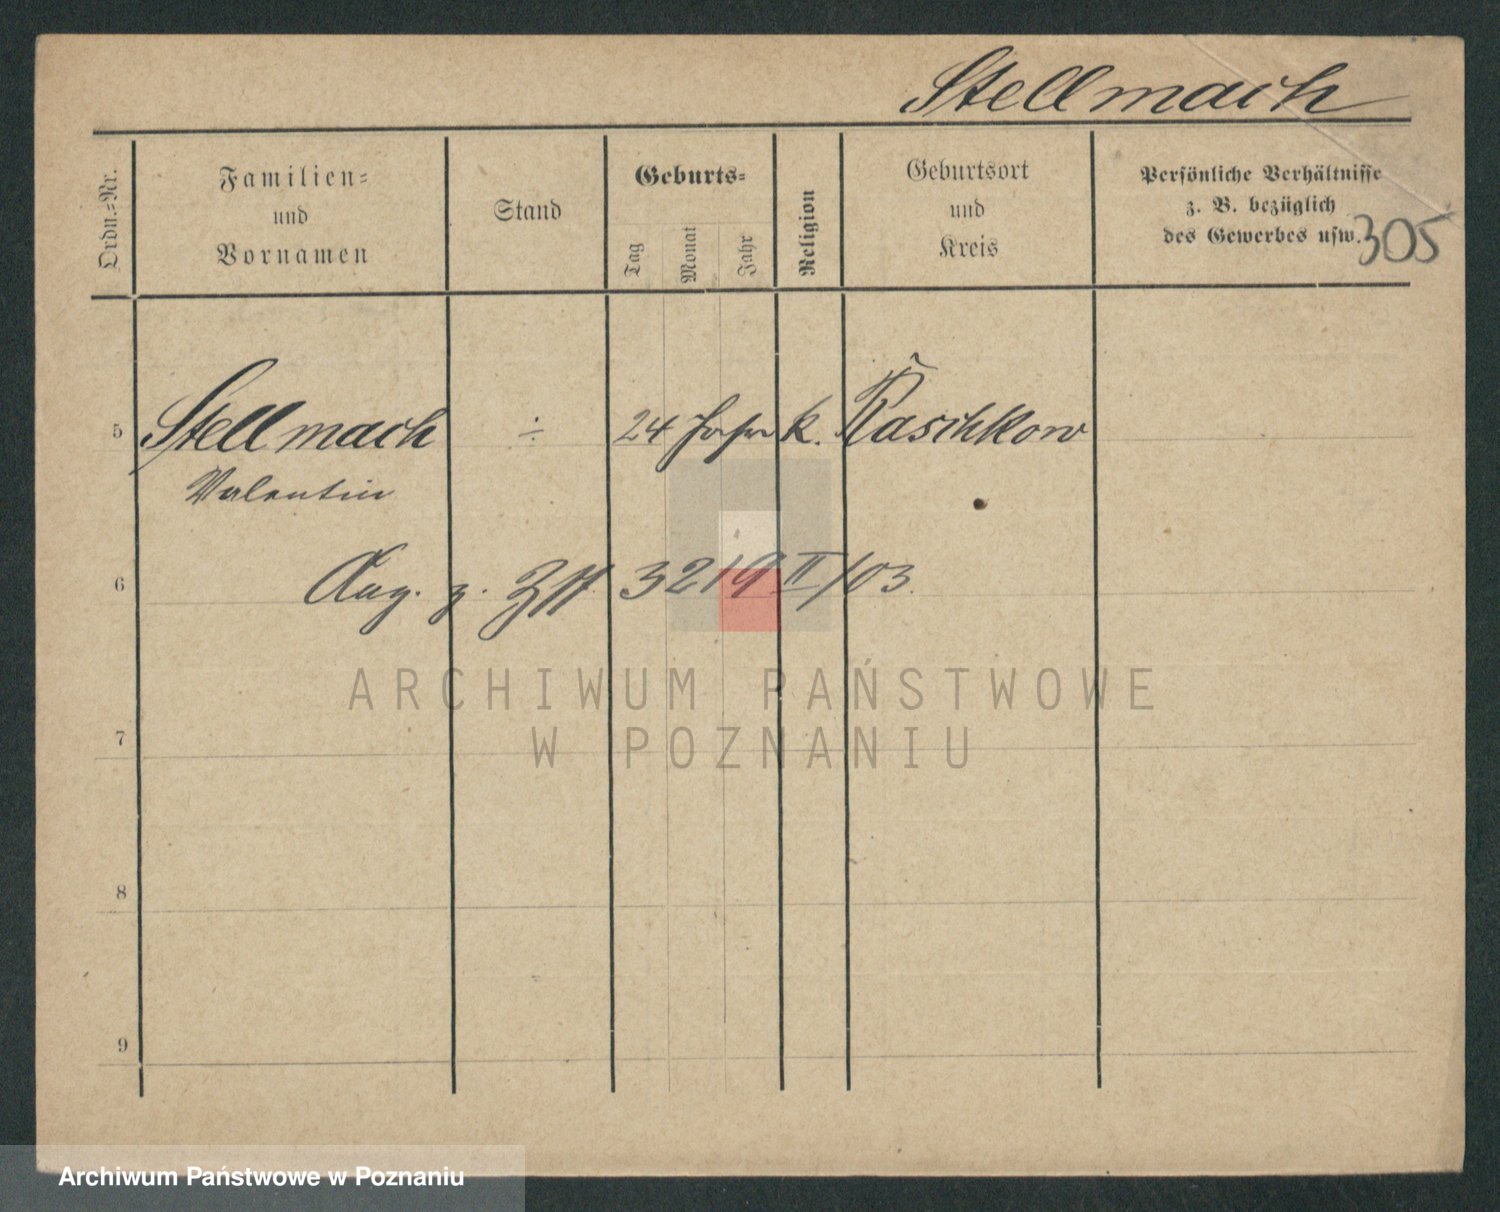 Stellmach
Ordn.=Nr.
Familien=
und
Vornamen
Stand
Geburts=
Tag
Monat
Jahr
Religion
Geburtsort
und
Kreis
Persönliche Verhältnisse
z. B. bezüglich
des Gewerbes usw.
305
5 Stellmach ÷ 24 Jahr k. Raschkow
Valentin
6 Aug. z. 3219 II/03.
7
8
9
ARCHIWUM PAŃSTWOWE
W POZNANIU
Archiwum Państwowe w Poznaniu